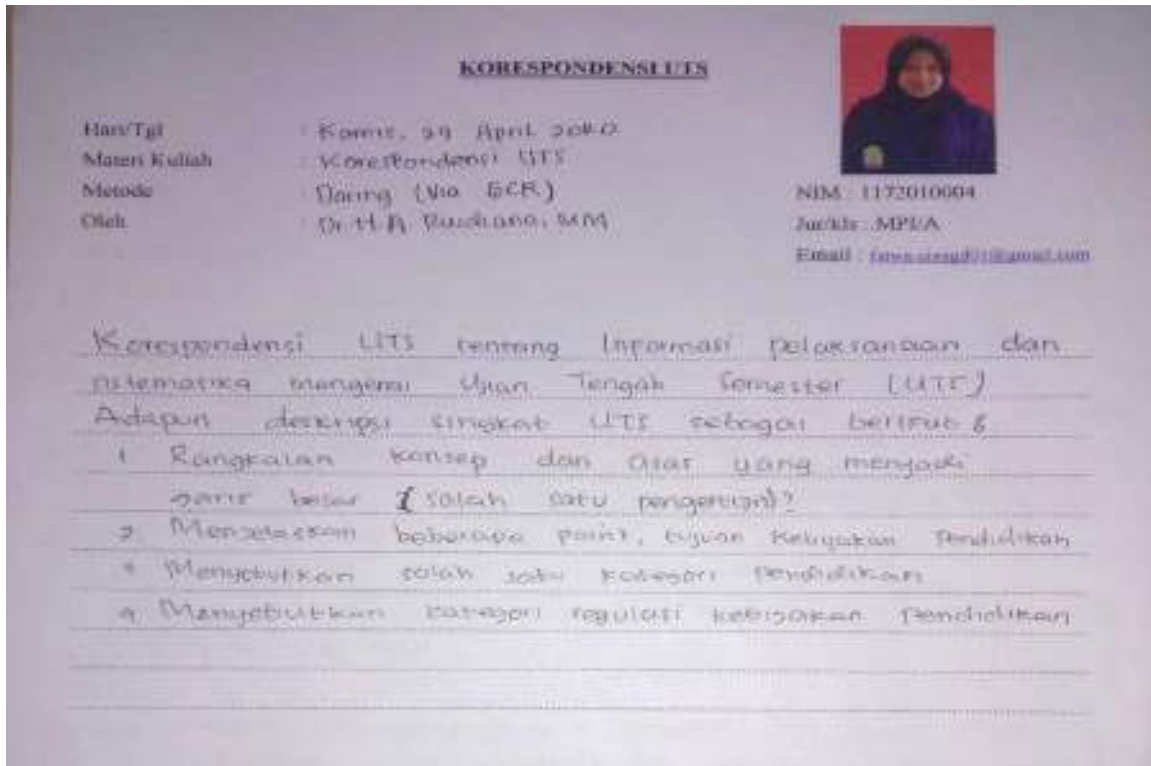 KORESPONDENSI UTS
Hari/Tgl : Kamis, 29 April 2020
Materi Kuliah : Korespondensi UTS
Metode : Daring (Via GCR)
Oleh : Dr. H. A. Rusdiana, MM
NIM : 1172010004
Jur/kls : MPI/A
Email : @gmail.com
Korespondensi UTS tentang Informasi pelaksanaan dan
sistematika mengenai Ujian Tengah Semester (UTS)
Adapun deskripsi singkat UTS sebagai berikut :
1 Rangkaian konsep dan asas yang menjadi
garis besar (salah satu pengertian)?
2. Menjelaskan beberapa point, tujuan Kebijakan Pendidikan
Menyebutkan salah satu kategori Pendidikan
4 Menyebutkan kategori regulasi kebijakan Pendidikan